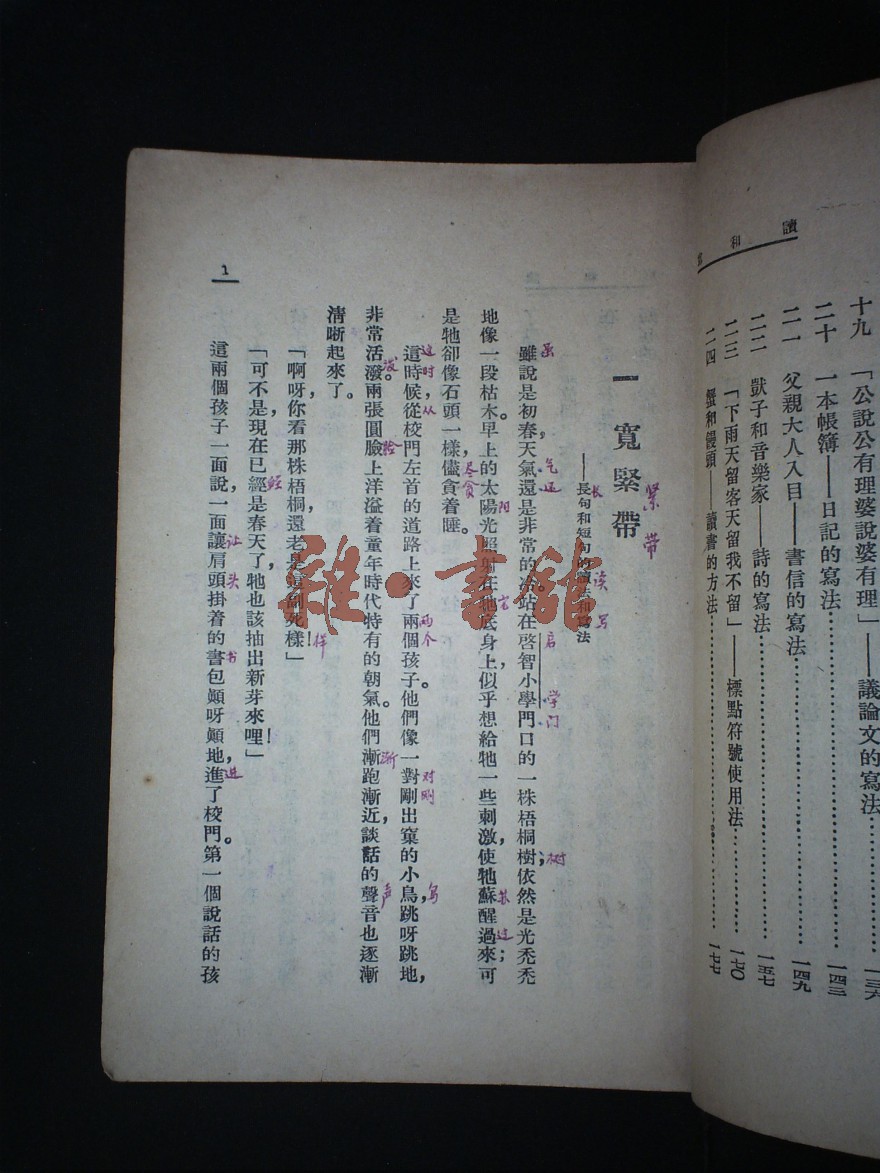 讀和
十九 「公說公有理婆說婆有理」——議論文的寫法…………一三六
二十 一本帳簿——日記的寫法…………一四三
二一 父親大人入目——書信的寫法…………一四九
二二 獃子和音樂家——詩的寫法…………一五七
二三 「下雨天留客天留我不留」——標點符號使用法…………一七〇
二四 蠶和饅頭——讀書的方法…………一七七
一 寬緊帶
紧带
——長句和短句的讀法和寫法
长 读 写
雖說是初春,天氣還是非常的冷。站在啓智小學門口的一株梧桐樹,依然是光禿禿
虽 气还 启 学门 树
地像一段枯木。早上的太陽光照射在牠底身上,似乎想給牠一些刺激,使牠蘇醒過來;可
阳 它 苏 过
是牠卻像石頭一樣,儘貪着睡。
尽贪
這時候,從校門左首的道路上來了兩個孩子。他們像一對剛出窠的小鳥,跳呀跳地,
这时,从 两个 对刚 鸟
非常活潑。兩張圓臉上洋溢着童年時代特有的朝氣。他們漸跑漸近,談話的聲音也逐漸
泼 脸 渐 声
清晰起來了。
「啊呀,你看那株梧桐,還老是這副死樣!」
样
「可不是,現在已經是春天了,牠也該抽出新芽來哩!」
经
這兩個孩子一面說,一面讓肩頭掛着的書包顛呀顛地,進了校門。第一個說話的孩
让头 书 进
1
雜·書館